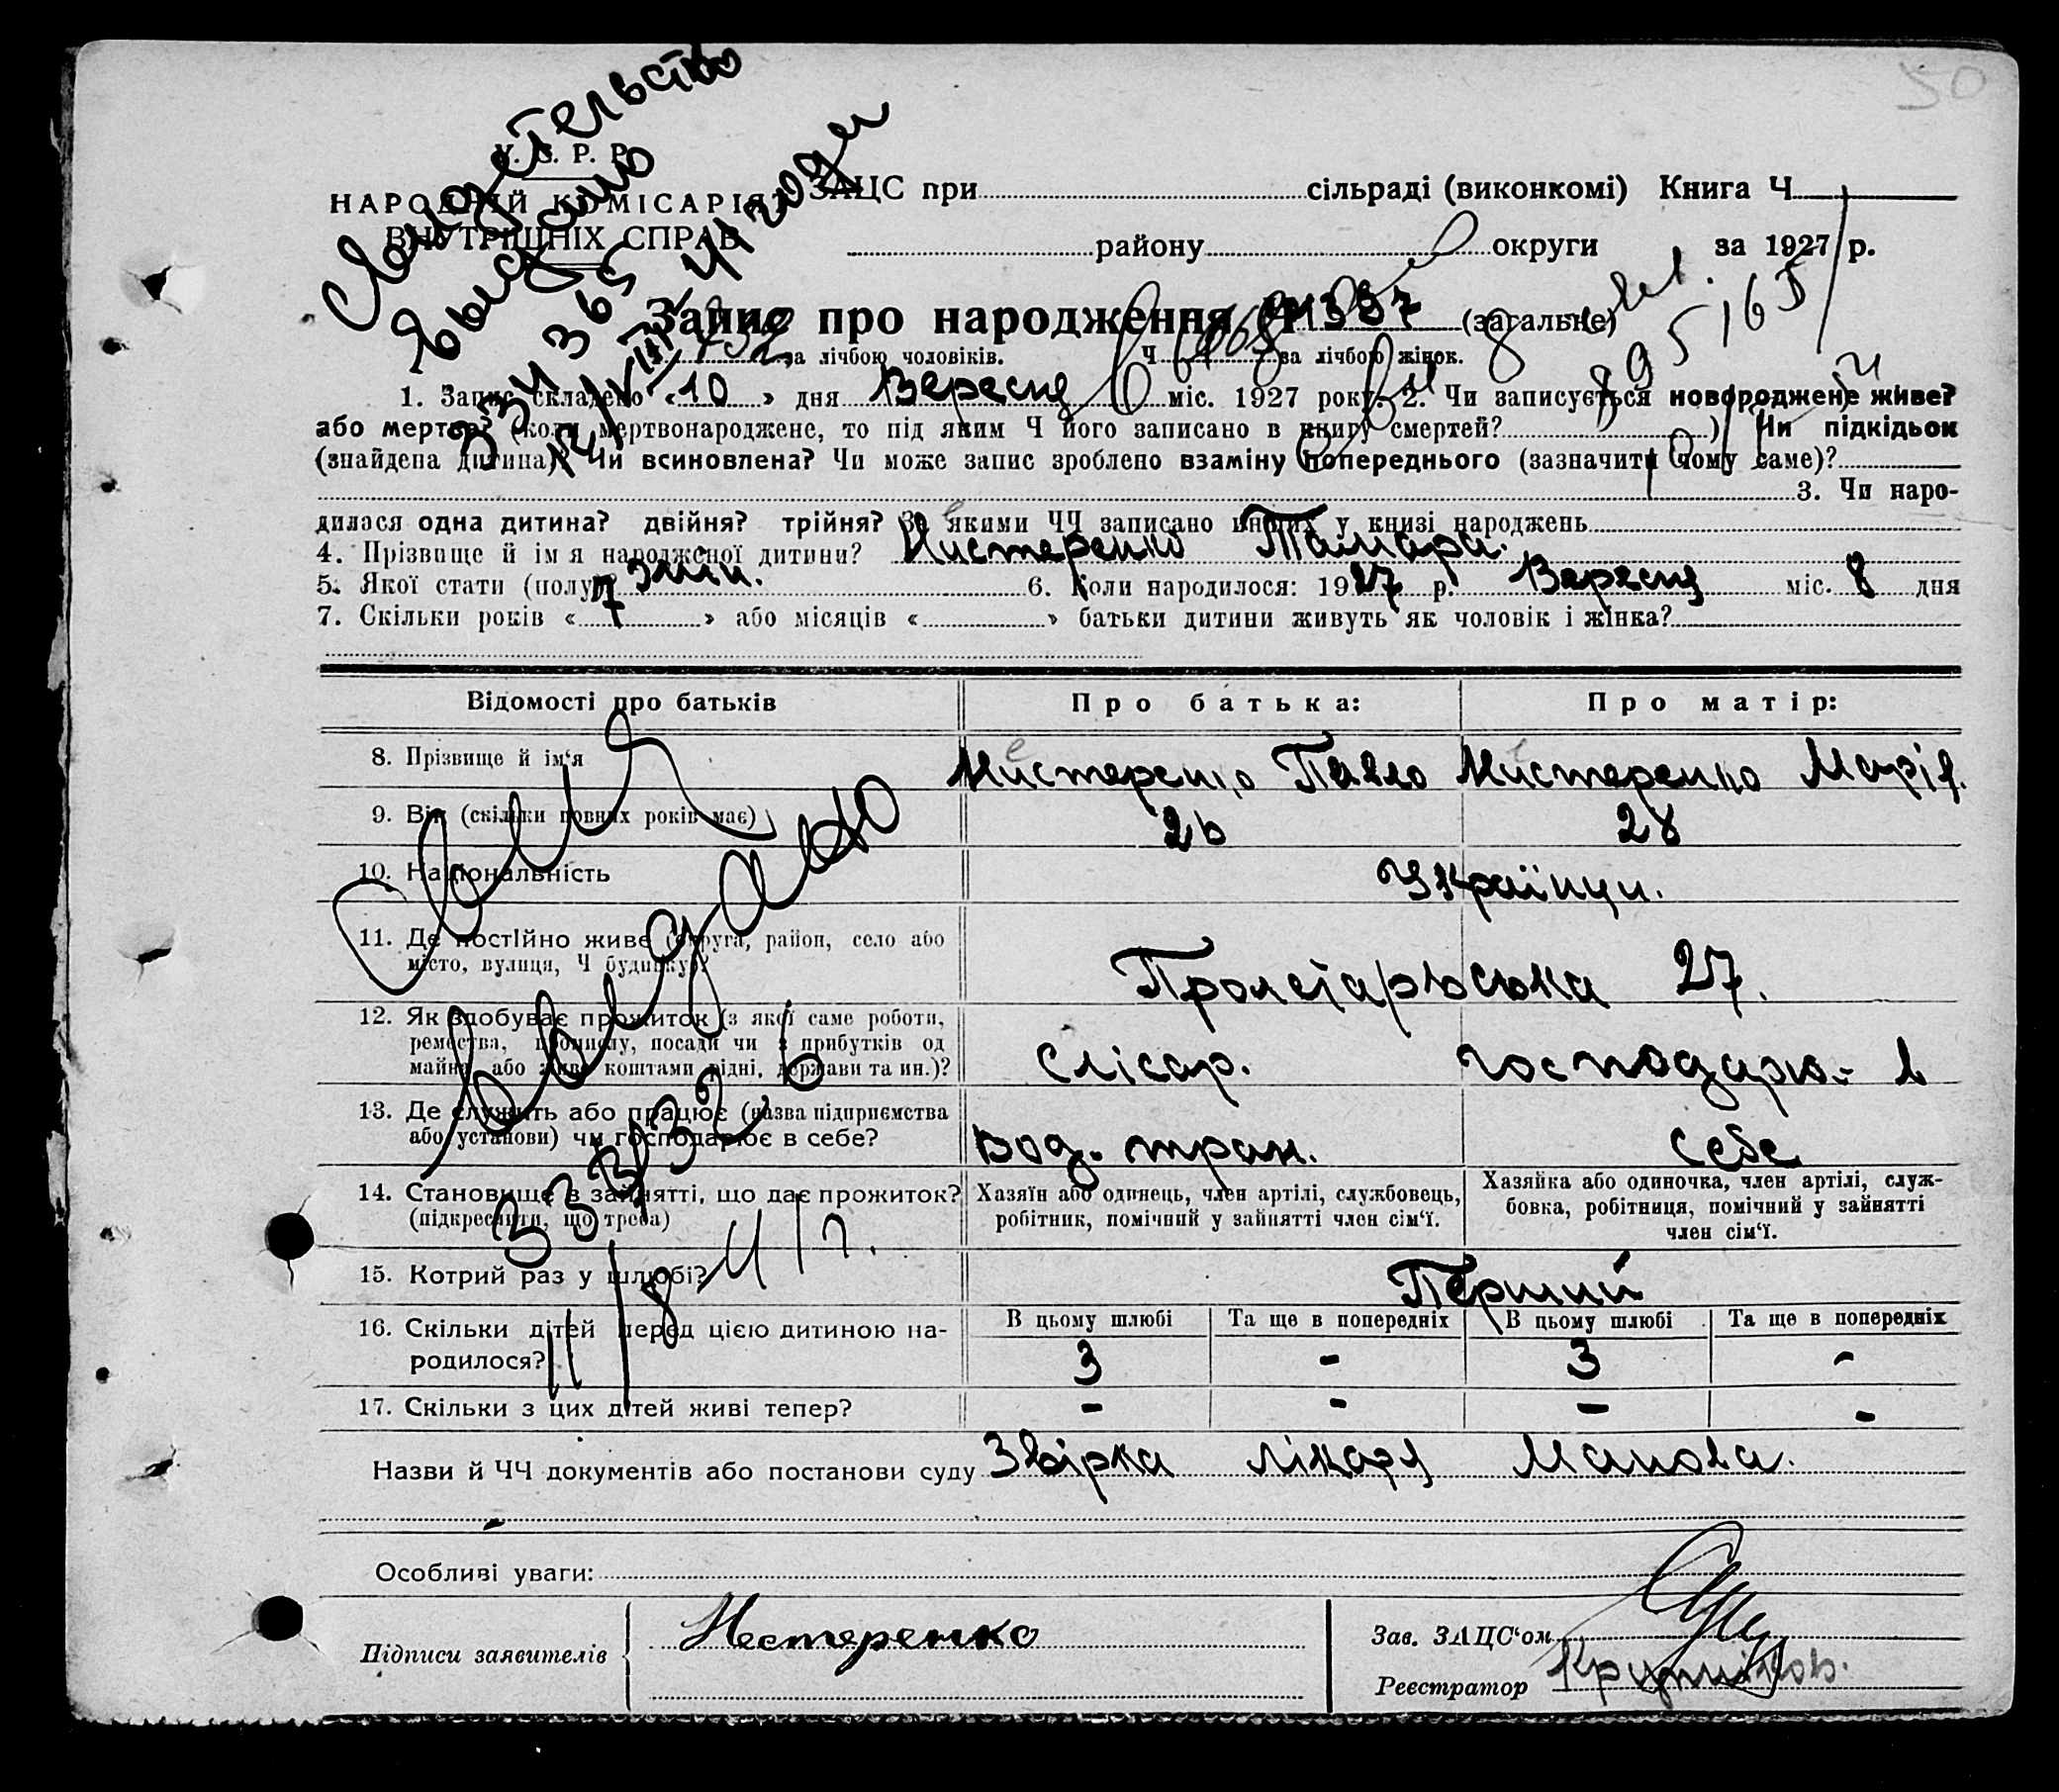 50
Свидетельство
выдано
У. С. Р. Р.
НАРОДНІЙ КОМІСАРІЯТ
ВНУТРІШНІХ СПРАВ
334365
ЗАЦС при сільраді (виконкомі) Книга Ч
району округи за 1927 р.
Запис про народження Ч 1387 (загальне)
за лічбою чоловіків. Ч за лічбою жінок.
1. Запис складено « 10 » дня Вересня міс. 1927 року. 2. Чи записується новороджене живе?
або мертве? (коли мертвонароджене, то під яким Ч його записано в книгу смертей? ) Чи підкідьок
(знайдена дитина)? Чи всиновлена? Чи може запис зроблено взаміну попереднього (зазначити чому саме)?
3. Чи наро-
дилася одна дитина? двійня? трійня? За якими ЧЧ записано инших у книзі народжень
4. Прізвище й ім'я народженої дитини? Нистеренко Тамара.
5. Якої стати (полу)? жин. 6. Коли народилося: 1927 р. Вересня міс. 8 дня
7. Скільки років « 7 » або місяців « » батьки дитини живуть як чоловік і жінка?
Відомості про батьків Про батька: Про матір:
8. Прізвище й ім'я Нистеренко Павло Нистеренко Марія.
9. Вік (скільки повних років має) 26 28
10. Національність Українци.
11. Де постійно живе (округа, район, село або
місто, вулиця, Ч будинку)? Пролетарьська 27.
12. Як здобуває прожиток (з якої саме роботи,
ремества, промислу, посади чи з прибутків од
майна, або живе коштами рідні, держави та ин.)? Слісар. господарю- в
13. Де служить або працює (назва підприємства
або установи) чи господарює в себе? вод. тран. себе
14. Становище в зайнятті, що дає прожиток?
(підкреслити, що треба)
Хазяїн або одинець, член артілі, службовець,
робітник, помічний у зайнятті член сім'ї.
Хазяйка або одиночка, член артілі, служ-
бовка, робітниця, помічний у зайнятті
член сім'ї.
15. Котрий раз у шлюбі? Перший
16. Скільки дітей перед цією дитиною на-
родилося?
В цьому шлюбі Та ще в попередніх В цьому шлюбі Та ще в попередніх
3 - 3 -
17. Скільки з цих дітей живі тепер? - - - -
выдано
Назви й ЧЧ документів або постанови суду Звірка лікаря Манова.
Особливі уваги:
Підписи заявителів Нестеренко
Зав. ЗАЦС'ом
Реєстратор